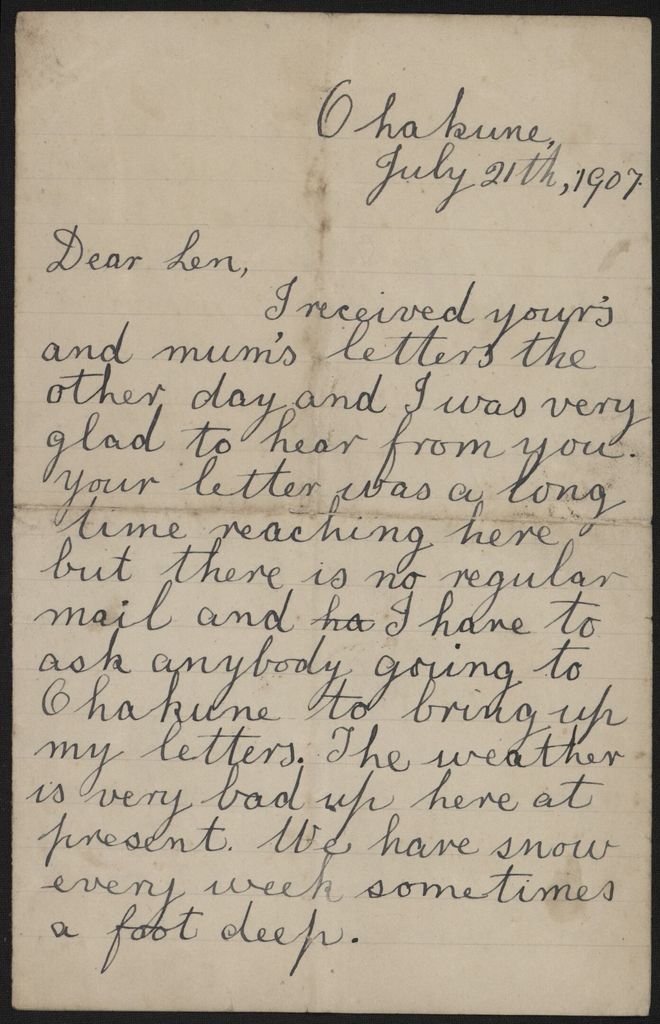 Ohakune,
July 21th, 1907.
Dear Len,
I received your's
and mum's letters the
other day and I was very
glad to hear from you.
Your letter was a long
time reaching here
but there is no regular
mail and ha I have to
ask anybody going to
Ohakune to bring up
my letters. The weather
is very bad up here at
present. We have snow
every week sometimes
a foot deep.